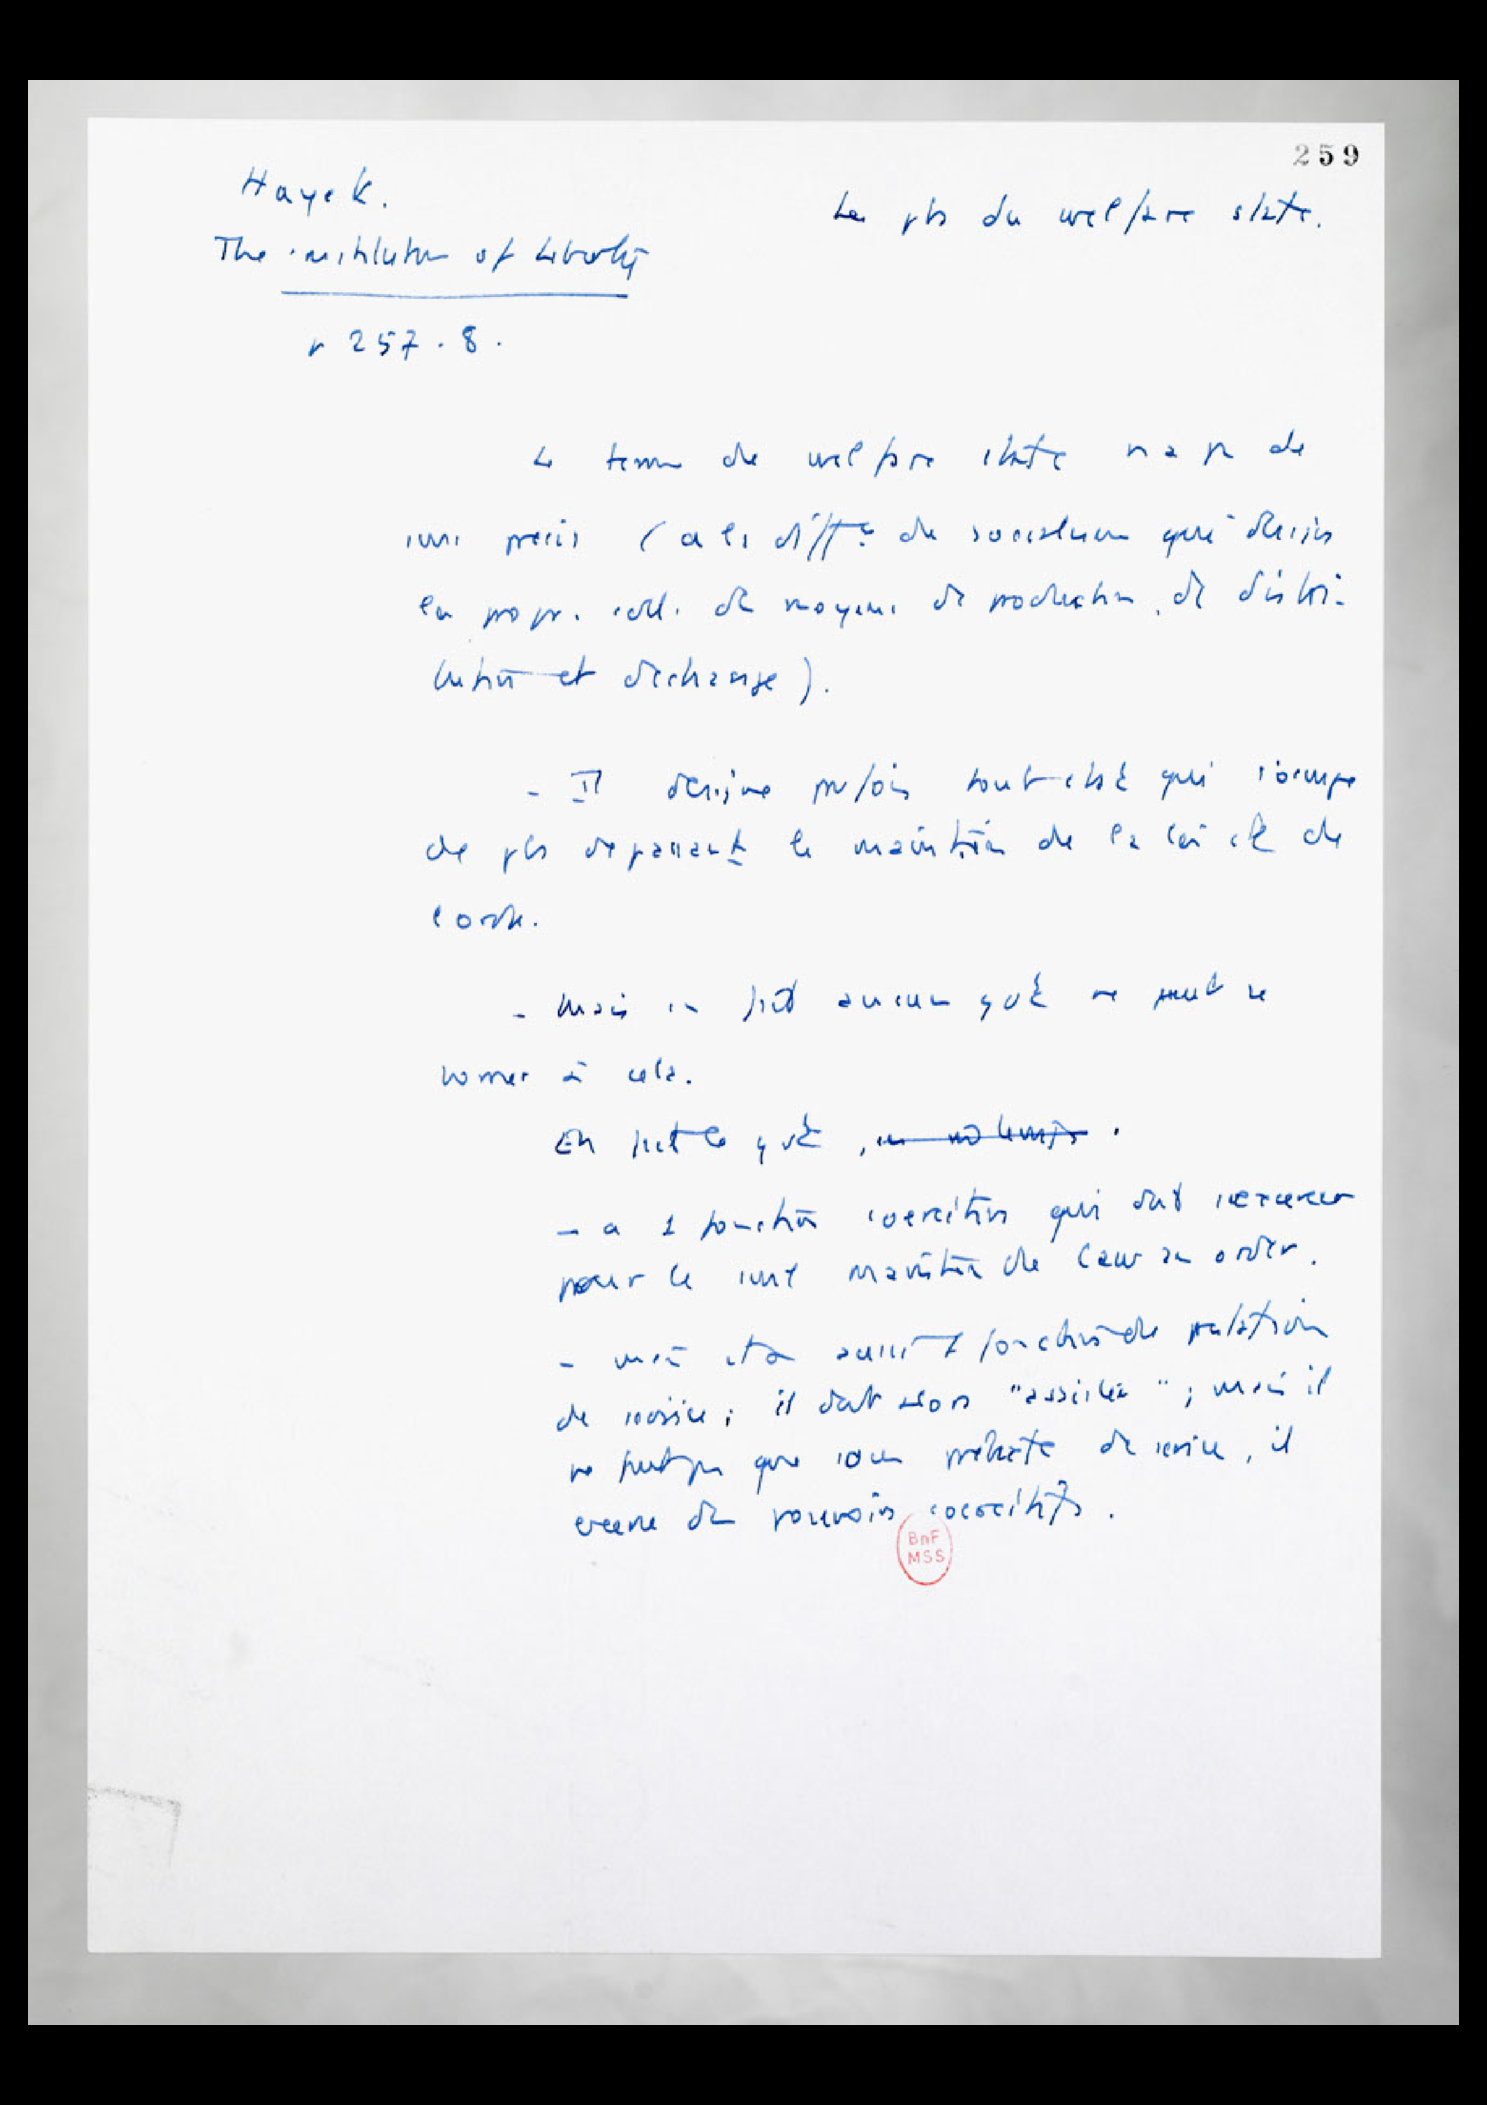 259
Hayek.
Les pbs du welfare state.
The constitution of Liberty
p 257.8.
Le terme de welfare state n a pas de
sens précis (a la diffce du socialisme qui désigne
la propr. coll. des moyens de production, de distri-
bution et d'echange).
- Il désigne parfois tout état qui s'occupe
de pbs depassant le maintien de la loi et de
l'ordre.
- Mais en fait aucun gvt ne peut se
borner à cela.
En fait le gvt,
- a 1 fonction coercitive qui doit s'exercer
pour le seul maintien de law an order.
- mais il a aussi 1 fonction de prestation
de service; il doit alors "assister"; mais il
ne peut pas que sous prétexte de service, il
exerce des pouvoirs coercitifs.
BnF
MSS